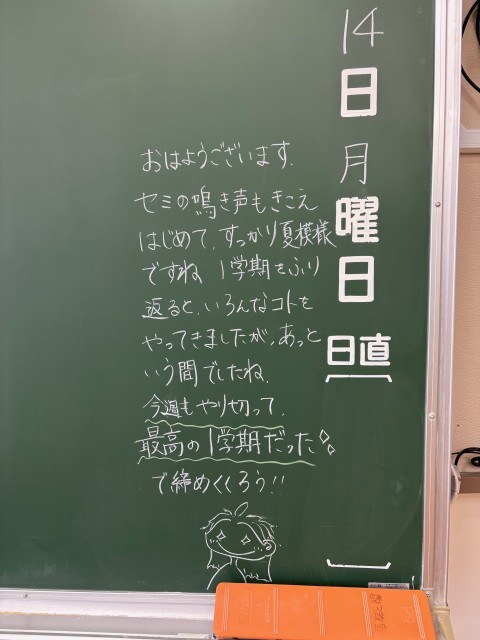 14
日
月
曜
日
日直
おはようございます.
セミの鳴き声もきこえ
はじめて、すっかり夏模様
ですね 1学期をふり
返ると、いろんなコトを
やってきましたが、あっと
いう間でしたね.
今週もやり切って、
最高の1学期だった
で締めくくろう!!